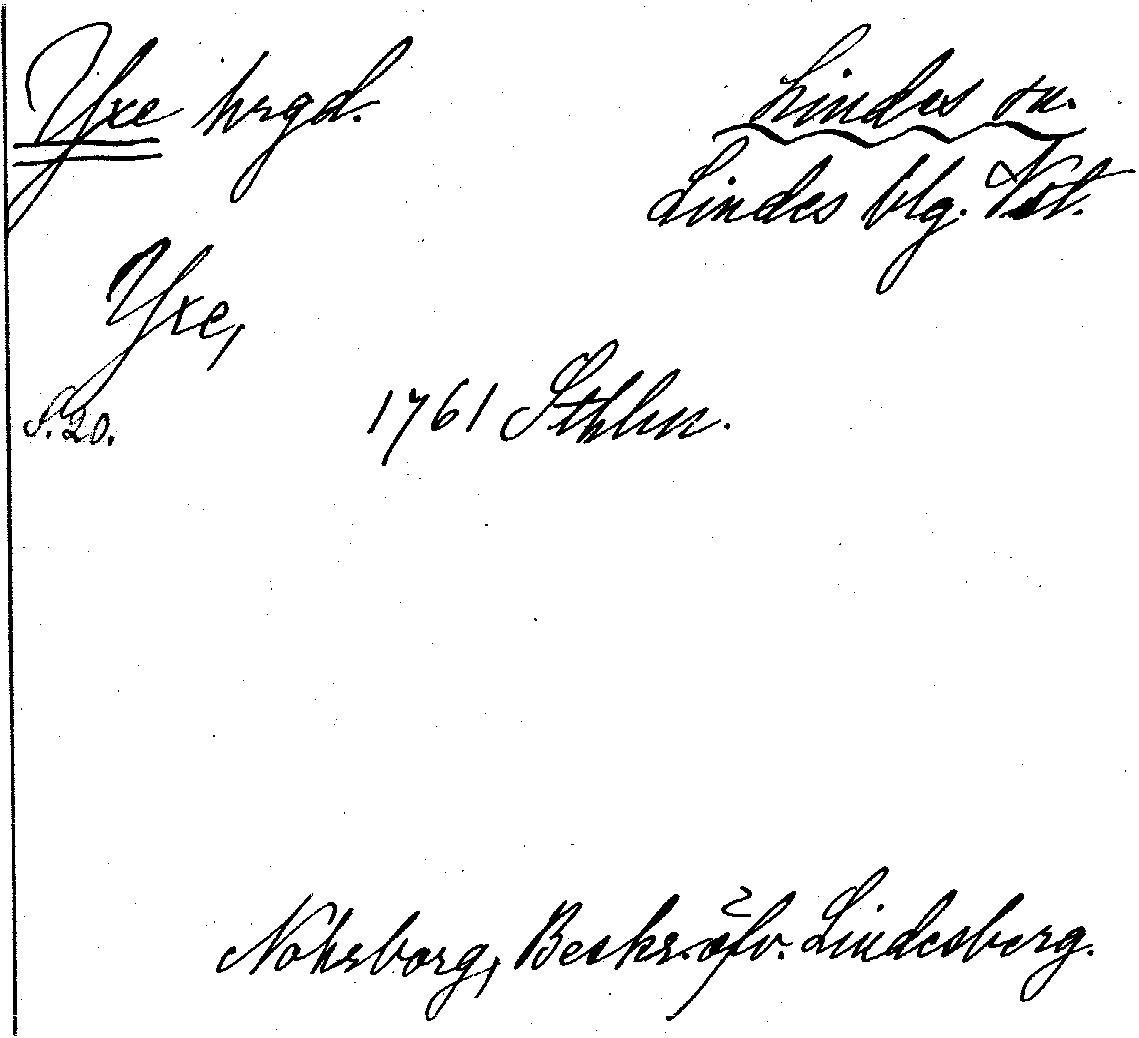 Yxe hrgd. Lindes sn.
Lindes blg. Vstl.
Yxe,
S. 20. 1761 Sthlm.
Nohrborg, Beskr. öfv. Lindesberg.